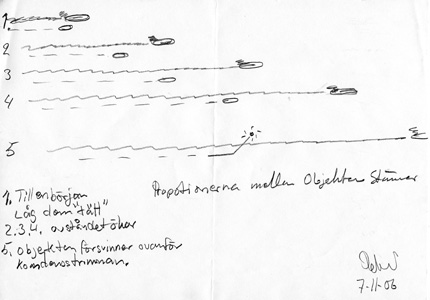 1
2
3
4
5
Propotionerna mellan Objekten Stämmer
1. Till en början
Låg dom "tätt"
2.3.4. avståndet ökar
5. Objekten försvinner ovanför
kondensstrimman.
7-11-06